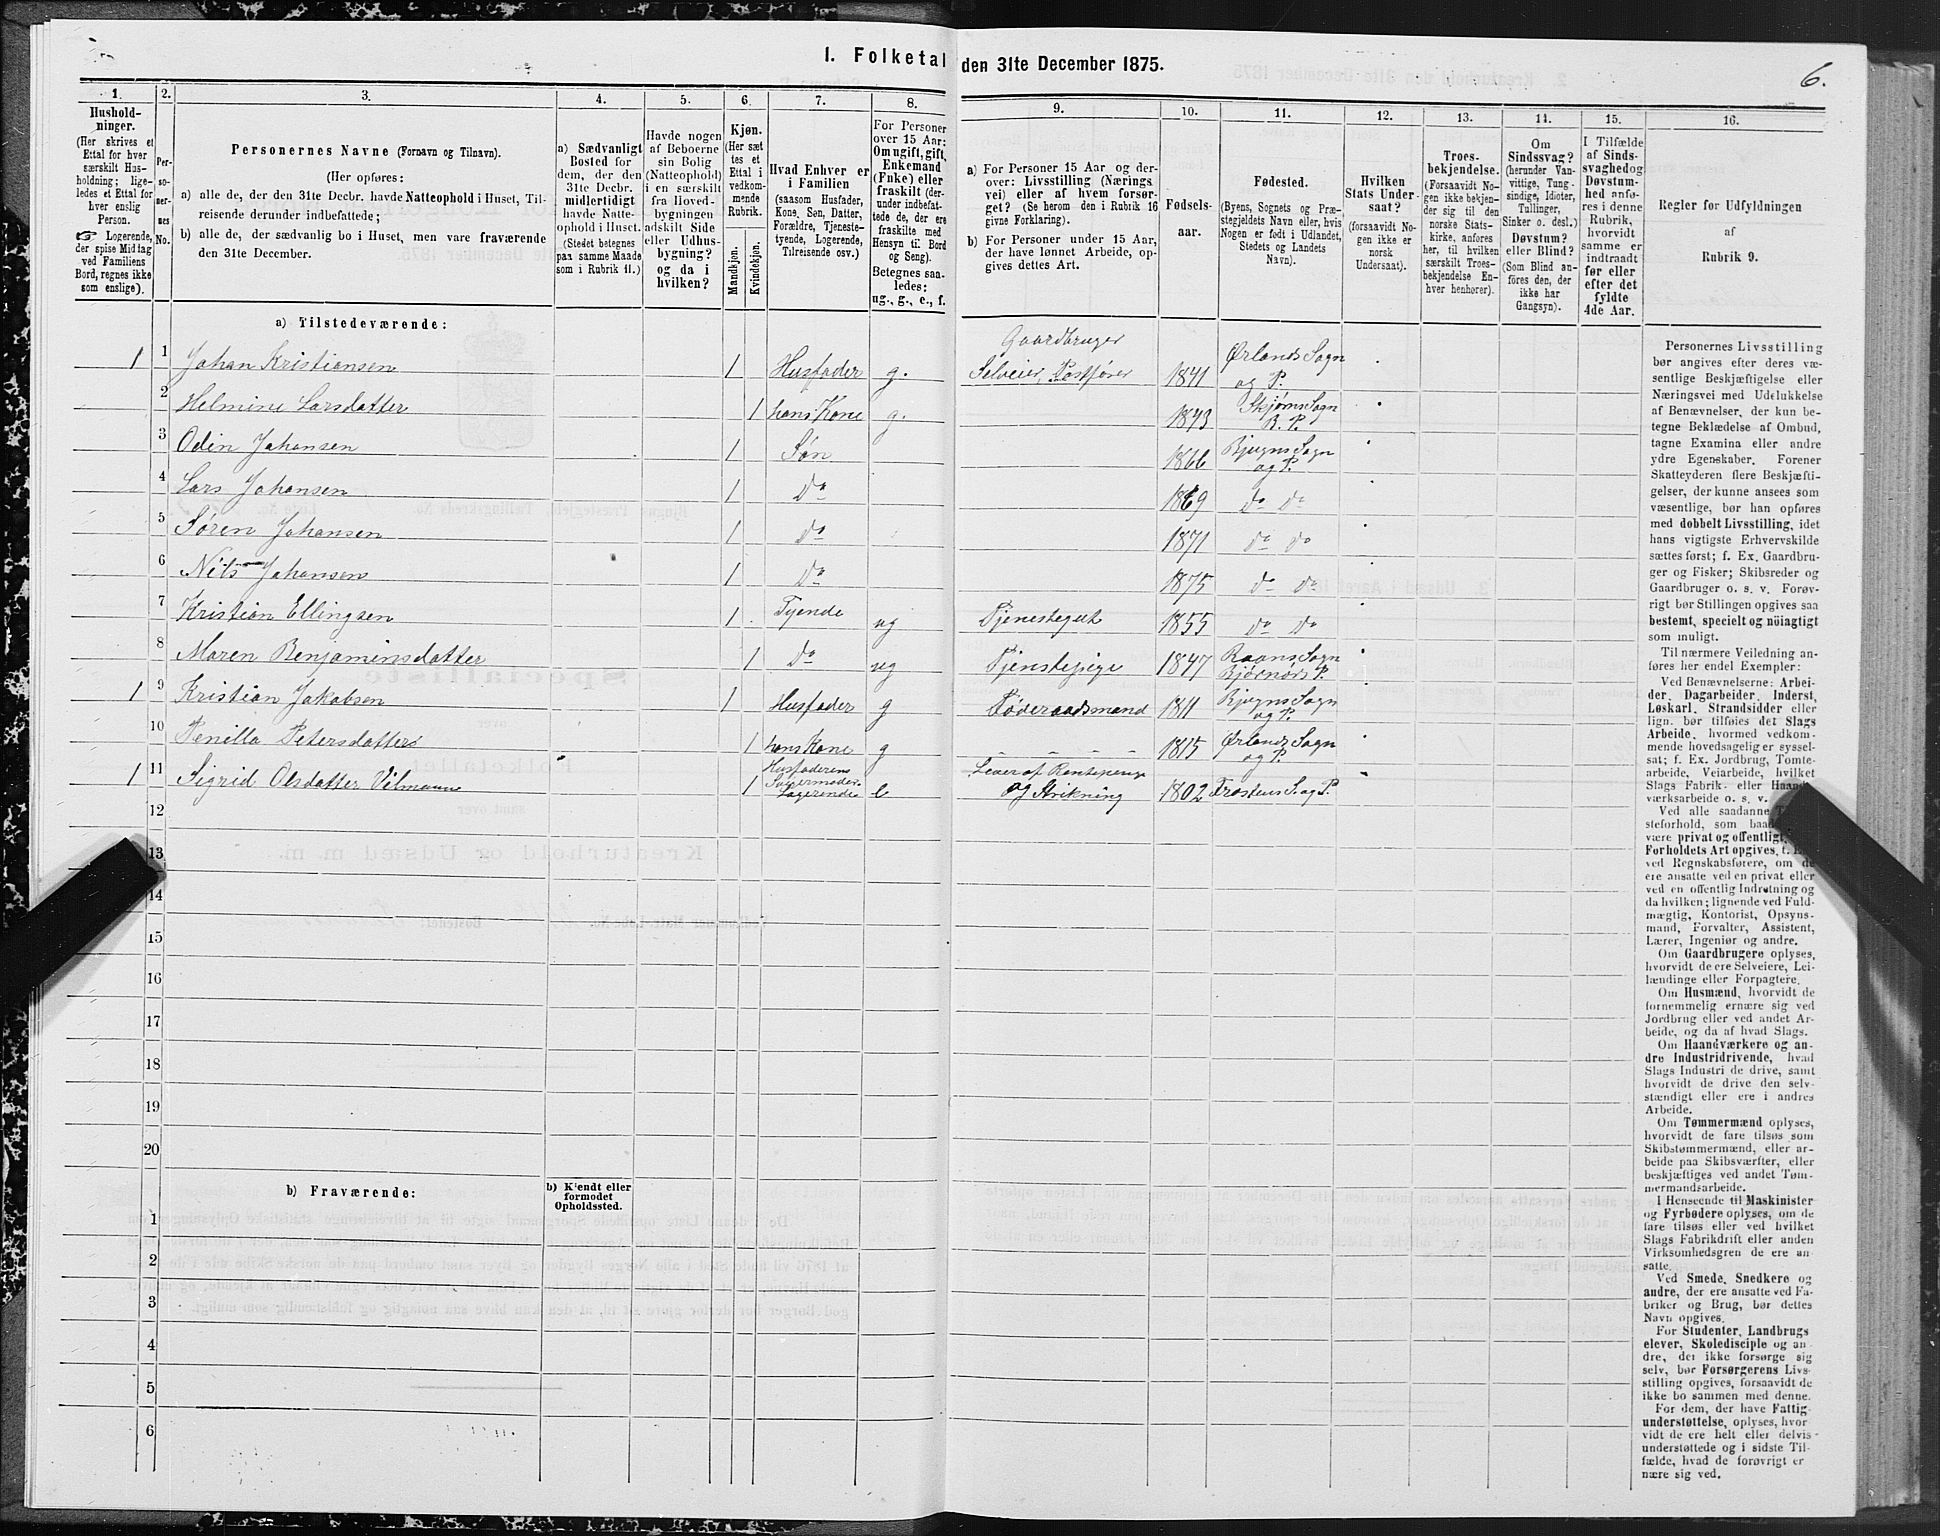 I. Folketal den 31te December 1875.
6.
1.
Hushold-
ninger.
(Her skrives et
Ettal for hver
særskilt Hus-
holdning; lige-
ledes et Ettal for
hver enslig
Person.
Logerende,
der spise Middag
ved Familiens
Bord, regnes ikke
som enslige).
2.
Per-
so-
ner-
nes
No.
3.
Personernes Navne (Fornavn og Tilnavn).
(Her opføres:
a) alle de, der den 31te Decbr. havde Natteophold i Huset, Til-
reisende derunder indbefattede;
b) alle de, der sædvanlig bo i Huset, men vare fraværende
den 31te December.
4.
a) Sædvanligt
Bosted for
dem, der den
31te Decbr.
midlertidigt
havde Natte-
ophold i Huset.
(Stedet betegnes
paa samme Maade
som i Rubrik 11.)
5.
Havde nogen
af Beboerne
sin Bolig
(Natteophold)
i en særskilt
fra Hoved-
bygningen
adskilt Side
eller Udhus-
bygning?
og da i
hvilken?
6.
Kjøn.
(Her sæt
tes et
Ettal i
vedkom-
mende
Rubrik.
Mandkjøn.
Kvindekjøn.
7.
Hvad Enhver er
i Familien
(saasom Husfader,
Kone, Søn, Datter,
Forældre, Tjeneste-
tyende, Logerende,
Tilreisende osv.)
8.
For Personer
over 15 Aar:
Om ugift, gift,
Enkemand
(Enke) eller
fraskilt (der-
under indbefat-
tede de, der ere
fraskilte med
Hensyn til Bord
og Seng).
Betegnes saa-
ledes:
ug., g., e., f.
9.
a) For Personer 15 Aar og der-
over: Livsstilling (Nærings
vei) eller af hvem forsør-
get? (Se herom den i Rubrik 16
givne Forklaring).
b) For Personer under 15 Aar,
der have lønnet Arbeide, op-
gives dettes Art.
10.
Fødsels-
aar.
11.
Fødested.
(Byens, Sognets og Præ-
stegjeldets Navn eller, hvis
Nogen er født i Udlandet,
Stedets og Landets
Navn).
12.
Hvilken
Stats Under-
saat?
(forsaavidt No-
gen ikke er
norsk
Undersaat).
13.
Troes-
bekjendelse.
(Forsaavidt No-
gen ikke bekjen-
der sig til den
norske Stats-
kirke, anføres
her, til hvilken
særskilt Troes-
bekjendelse En-
hver henhører).
14.
Om
Sindssvag?
(herunder Van-
vittige, Tung-
sindige, Idioter,
Tullinger,
Sinker o. desl.)
Døvstum?
eller Blind?
(Som Blind an-
føres den, der
ikke har
Gangsyn).
15.
I Tilfælde
af Sinds-
svaghed og
Døvstum-
hed anfø-
res i denne
Rubrik,
hvorvidt
samme er
indtraadt
før eller
efter det
fyldte
4de Aar.
16.
Regler for Udfyldningen
af
Rubrik 9.
a) Tilstedeværende:
1 1 Johan Kristiansen 1 Husfader g. Gaardbruger Selveier, Postfører 1841 Ørlands Sogn og P.
2 Helmine Larsdatter 1 hans Kone g. 1843 Skjørns Sogn B. P.
3 Odin Johansen 1 Søn 1866 Bjugns Sogn og P.
4 Lars Johansen 1 do 1869 do do
5 Søren Johansen 1 do 1871 do do
6 Nils Johansen 1 do 1875 do do
7 Kristian Ellingsen 1 Tyende ug Tjenestegut 1855 do do
8 Maren Benjaminsdatter 1 do ug Tjenstepige 1847 Roans Sogn Bjørnørs P.
1 9 Kristian Jakobsen 1 Husfader g Føderaadsmand 1811 Bjugns Sogn og P.
10 Penilla Petersdatters 1 hans Kone g - - - - 1815 Ørlands Sogn og P.
1 11 Sigrid Olsdatter Vilmann 1 Husfaderens Logerende e Lever af Rentepenge og Strikning 1802 Frostens S. og P.
12
13
14
15
16
17
18
19
20
b) Fraværende:
b) Kjendt eller
formodet
Opholdssted.
1
2
3
4
5
6
Personernes Livsstilling
bør angives efter deres væ-
sentlige Beskjæftigelse eller
Næringsvei med Udelukkelse
af Benævnelser, der kun be-
tegne Beklædelse af Ombud,
tagne Examina eller andre
ydre Egenskaber. Forener
Skatteyderen flere Beskjæfti-
gelser, der kunne ansees som
væsentlige, bør han opføres
med dobbelt Livsstilling, idet
hans vigtigste Erhvervskilde
sættes først; f. Ex. Gaardbru-
ger og Fisker; Skibsreder og
Gaardbruger o. s. v. Forøv-
rigt bør Stillingen opgives saa
bestemt, specielt og nöiagtigt
som muligt.
Til nærmere Veiledning an-
føres her endel Exempler:
Ved Benævnelserne: Arbei-
der, Dagarbeider, Inderst,
Løskarl, Strandsidder eller
lign. bør tilføies det Slags
Arbeide, hvormed vedkom-
mende hovedsagelig er syssel-
sat; f. Ex. Jordbrug, Tomte-
arbeide, Veiarbeide, hvilket
Slags Fabrik- eller Haand-
værksarbeide o. s. v.
Ved alle saadanne
steforhold, som baade
være privat og offentligt,
Forholdets Art opgives, f. Ex.
ved Regnskabsførere, om de
ere ansatte ved en privat eller
ved en offentlig Indretning og
da hvilken; lignende ved Fuld-
mægtig, Kontorist, Opsyns-
mand, Forvalter, Assistent,
Lærer, Ingeniør og andre.
Om Gaardbrugere oplyses,
hvorvidt de ere Selveiere, Lei-
lændinge eller Forpagtere.
Om Husmænd, hvorvidt de
fornemmelig ernære sig ved
Jordbrug eller ved andet Ar-
beide, og da af hvad Slags.
Om Haandværkere og an-
dre Industridrivende, hvad
Slags Industri de drive, samt
hvorvidt de drive den selv-
stændigt eller ere i andres
Arbeide.
Om Tømmermænd oplyses,
hvorvidt de fare tilsøs som
Skibstømmermænd, eller ar-
beide paa Skibsværfter, eller
beskjæftiges ved andet Tøm-
mermandsarbeide.
I Henseende til Maskinister
og Fyrbødere oplyses, om de
fare tilsøs eller ved hvilket
Slags Fabrikdrift eller anden
Virksomhedsgren de ere an-
satte.
Ved Smede, Snedkere og
andre, der ere ansatte ved Fa-
briker og Brug, bør dettes
Navn opgives.
For Studenter, Landbrugs
elever, Skoledisciple og an-
dre, der ikke forsørge sig
selv, bør Forsørgerens Livs-
stilling opgives, forsaavidt de
ikke bo sammen med denne.
For dem, der have Fattig-
understøttelse, oplyses, hvor-
vidt de ere helt eller delvis
understøttede og i sidste Til-
fælde, hvad de forøvrigt er
nære sig ved.